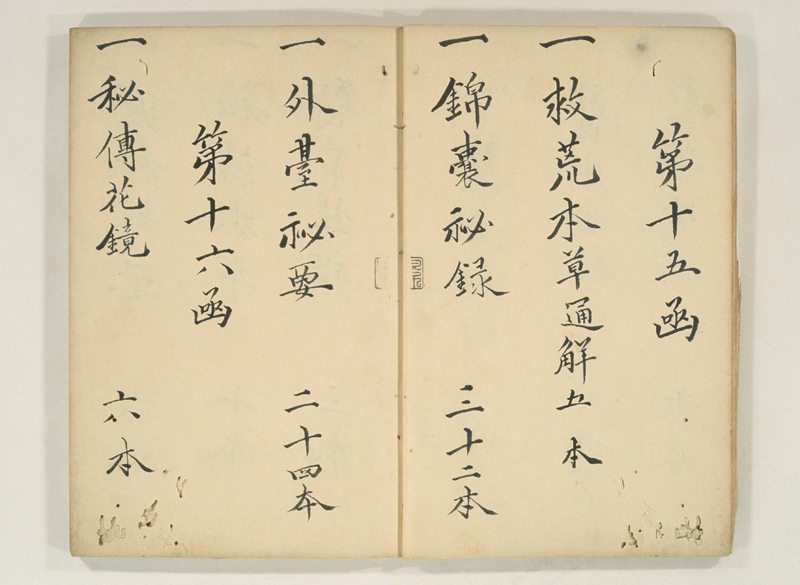 第十五凾
一 救荒本草通解 五本
一 錦囊秘録 三十二本
一 外臺秘要 二十四本
第十六凾
一 秘傳花鏡 六本